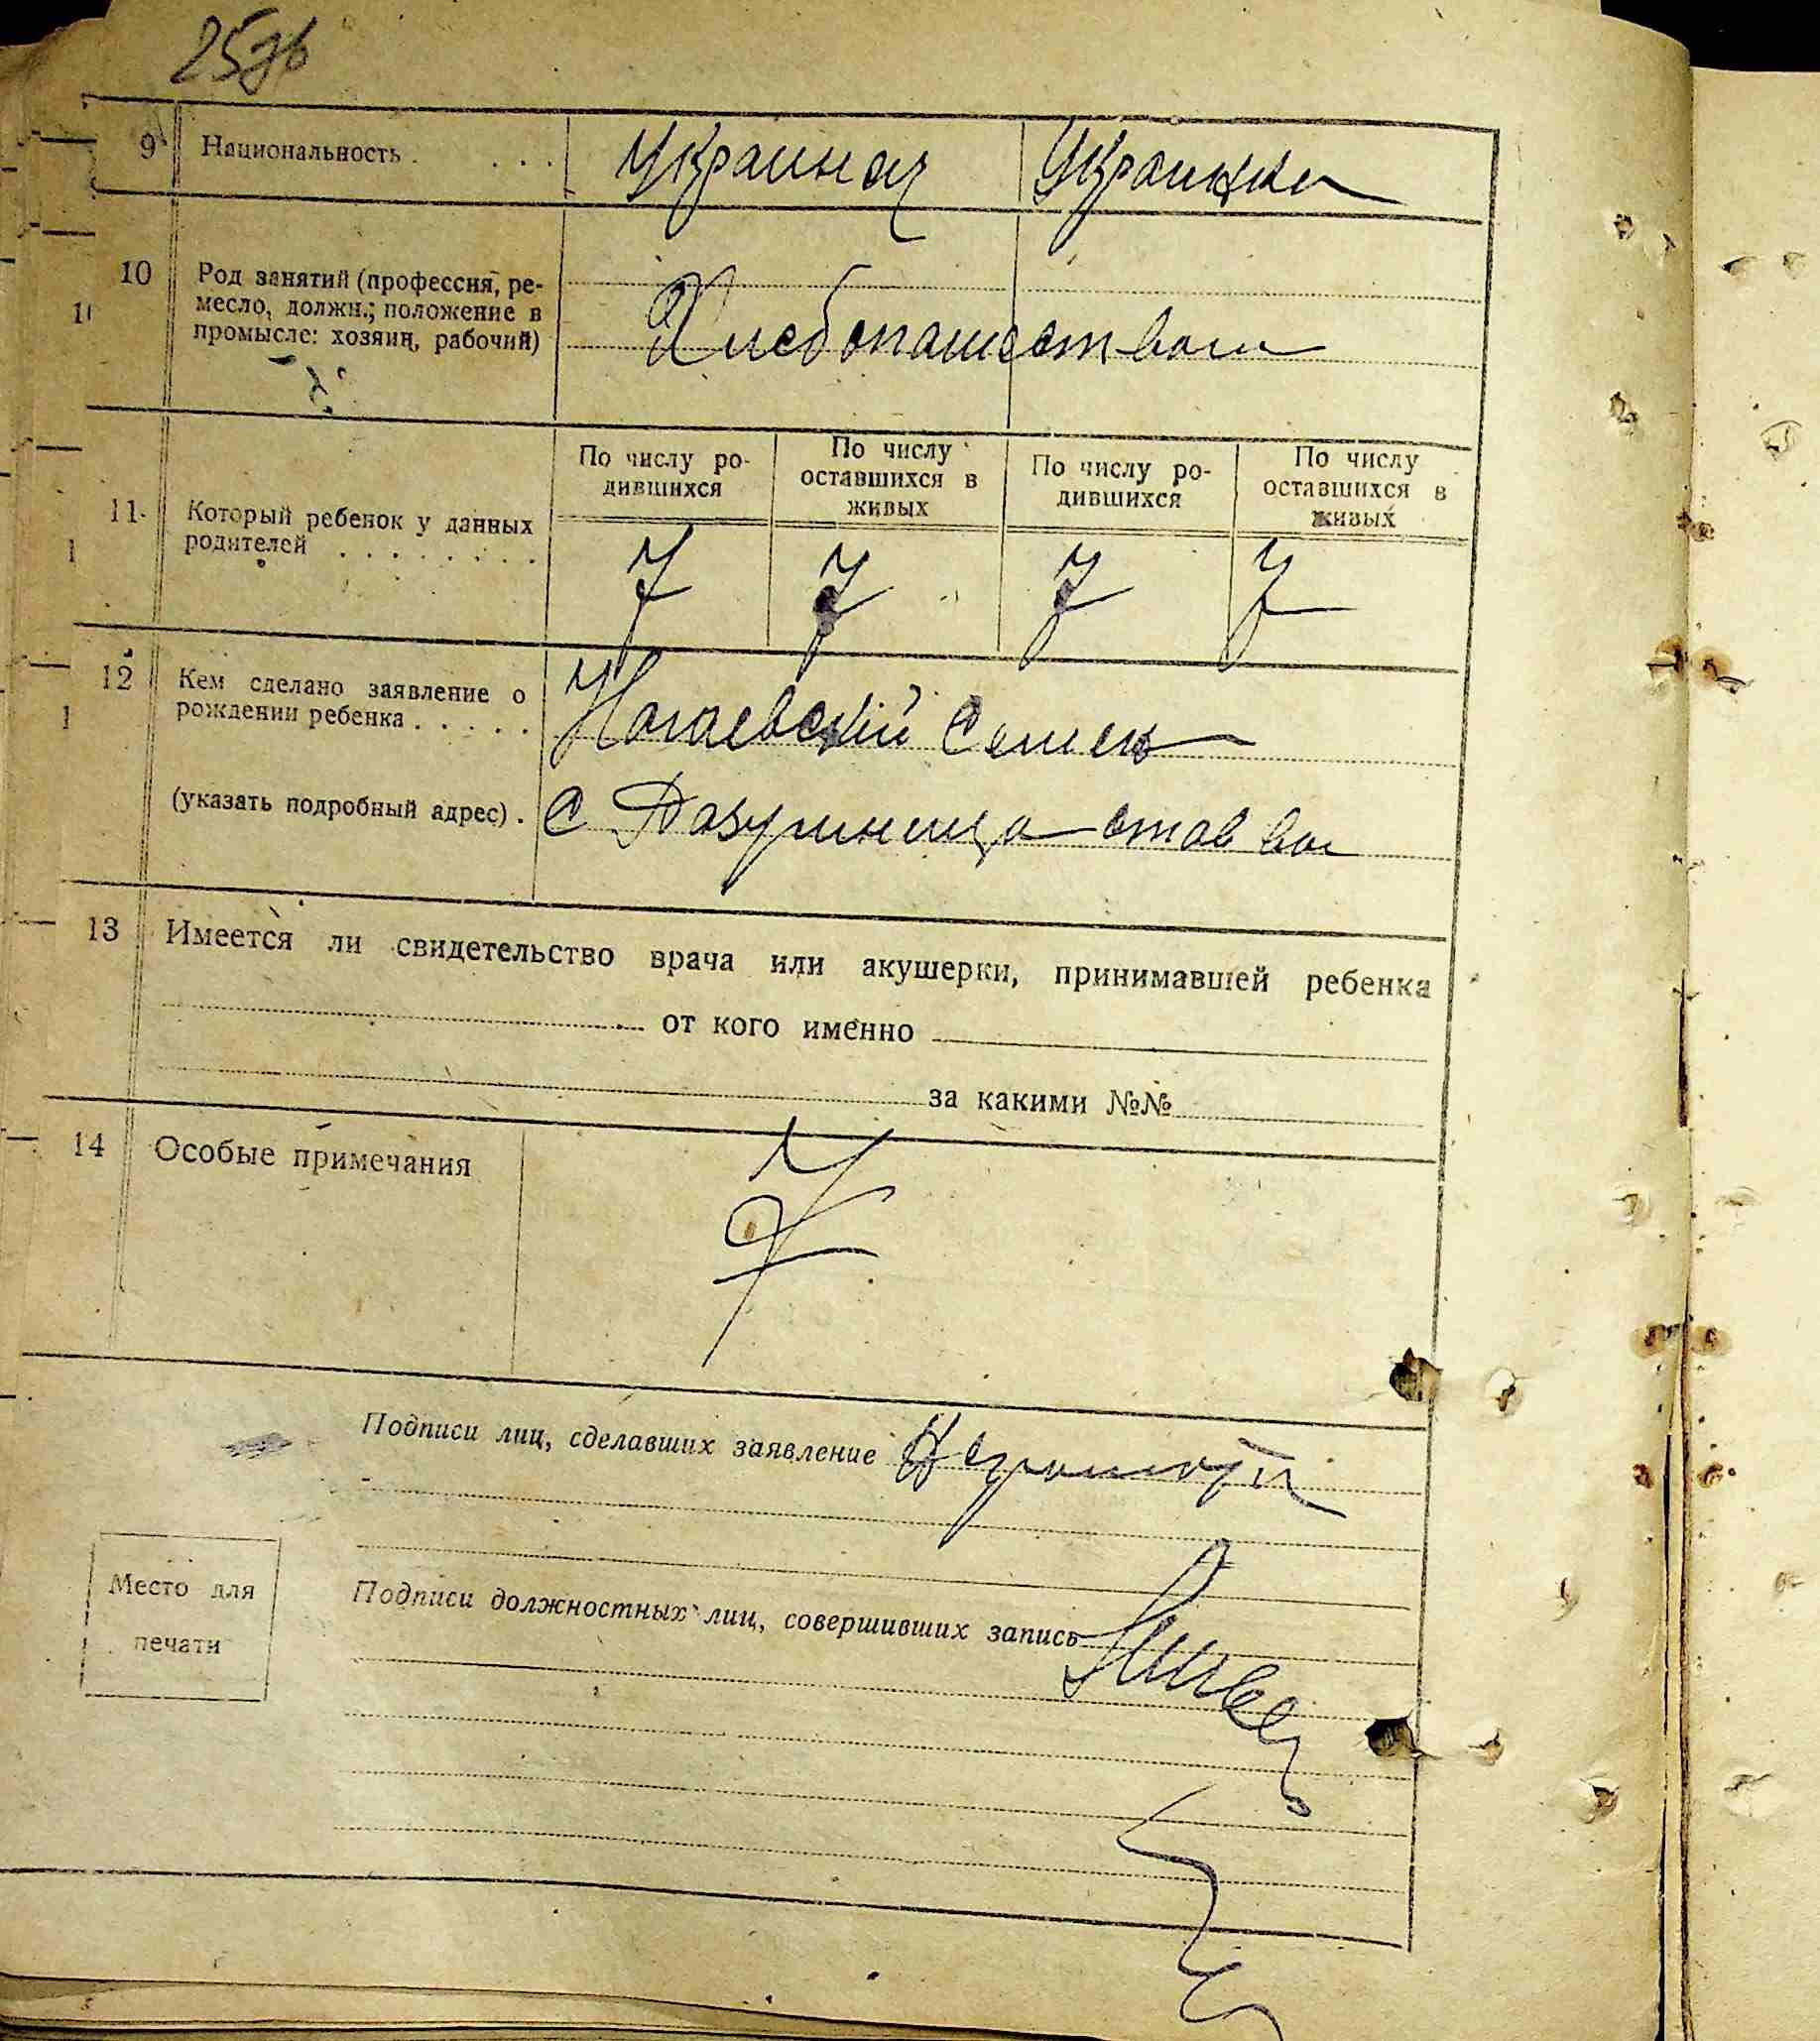 25зв
9 Национальность . . . . Украинец Украинка
10 Род занятий (профессия, ре-
месло, должн.; положение в
промысле: хозяин, рабочий)
Хлебопашеством
По числу ро-
дившихся
По числу
оставшихся в
живых
По числу ро-
дившихся
По числу
оставшихся в
живых
11 Который ребенок у данных
родителей . . . . . . . .
7 7 7 7
12 Кем сделано заявление о
рождении ребенка . . . . .
Ногаевский Семен
(указать подробный адрес) . С
13 Имеется ли свидетельство врача или акушерки, принимавшей ребенка
от кого именно
за какими №№
14 Особые примечания
Подписи лиц, сделавших заявление
Подписи должностных лиц, совершивших запись
Место для
печати